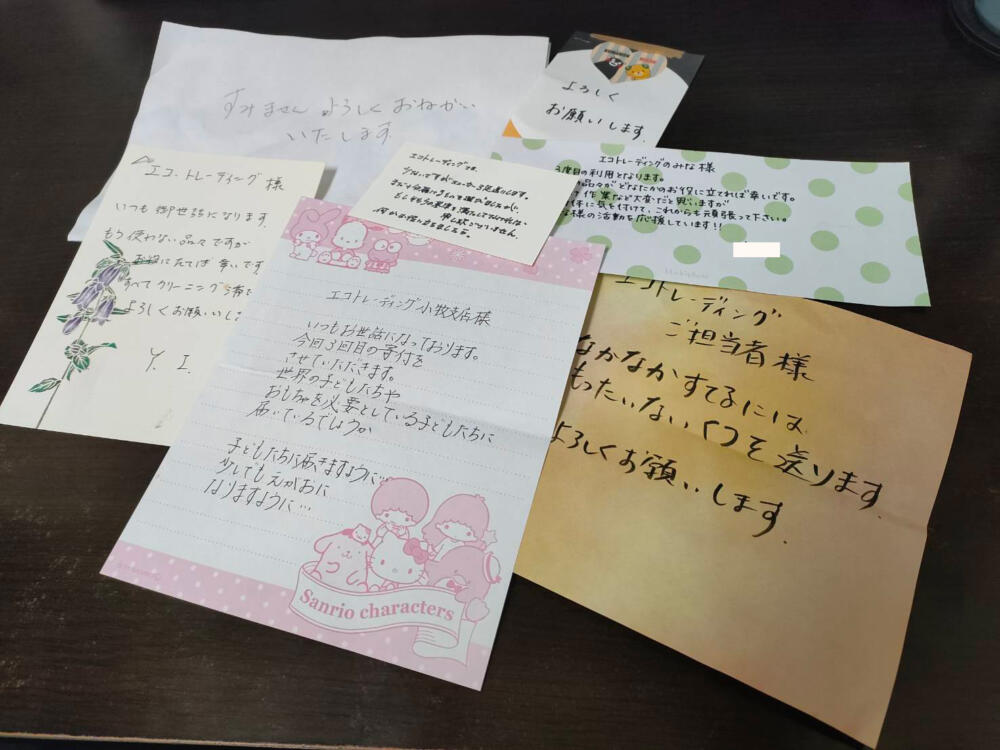 すみません よろしく おねがい
いたします
よろしく
お願いします。
エコトレーディングのみな様
3度目の利用となります。
品々がどなたかのお役に立てれば幸いです。
作業など大変だと思いますが
体に気を付けて、これからも頑張って下さい。
様の活動を応援しています!!
エコトレーディング様
エコ・トレーディング 様
いつも御世話になります
もう使わない品々ですが
お役にたてば幸いです
すべてクリーニング済
よろしくお願いし
Y. I.
エコトレーディング小牧支店様
いつもお世話になっております。
今回3回目の寄付を
させていただきます。
世界の子どもたちや
おもちゃを必要としている子どもたちに
届いているでしょうか
子どもたちに届きますように…
少しでもえがおに
なりますように…
Sanrio characters
エコトレーディング
ご担当者様
なかなかすてるには
もったいないくつを送ります。
よろしくお願いします。